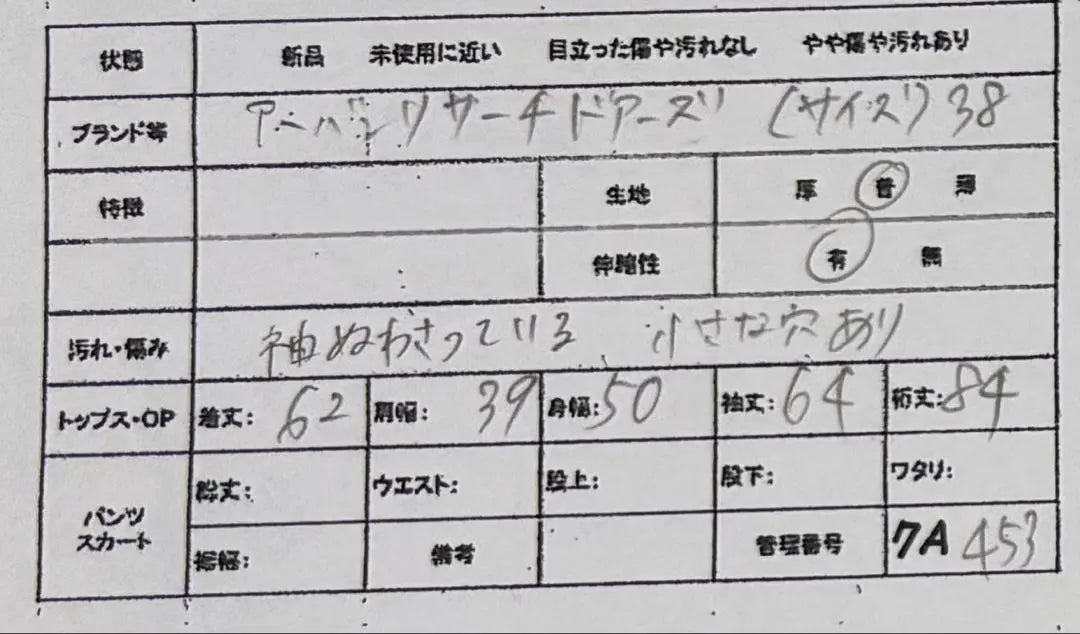 状態 新品 未使用に近い 目立った傷や汚れなし やや傷や汚れあり
ブランド等 アーバンリサーチドアーズ (サイズ) 38
特徴 生地 厚 普 薄
伸縮性 有 無
汚れ・傷み 袖ぬわさっている 小さな穴あり
トップス・OP 着丈: 62 肩幅: 39 身幅: 50 袖丈: 64 裄丈: 84
パンツ スカート 総丈: ウエスト: 股上: 股下: ワタリ:
裾幅: 備考 管理番号 7A 453